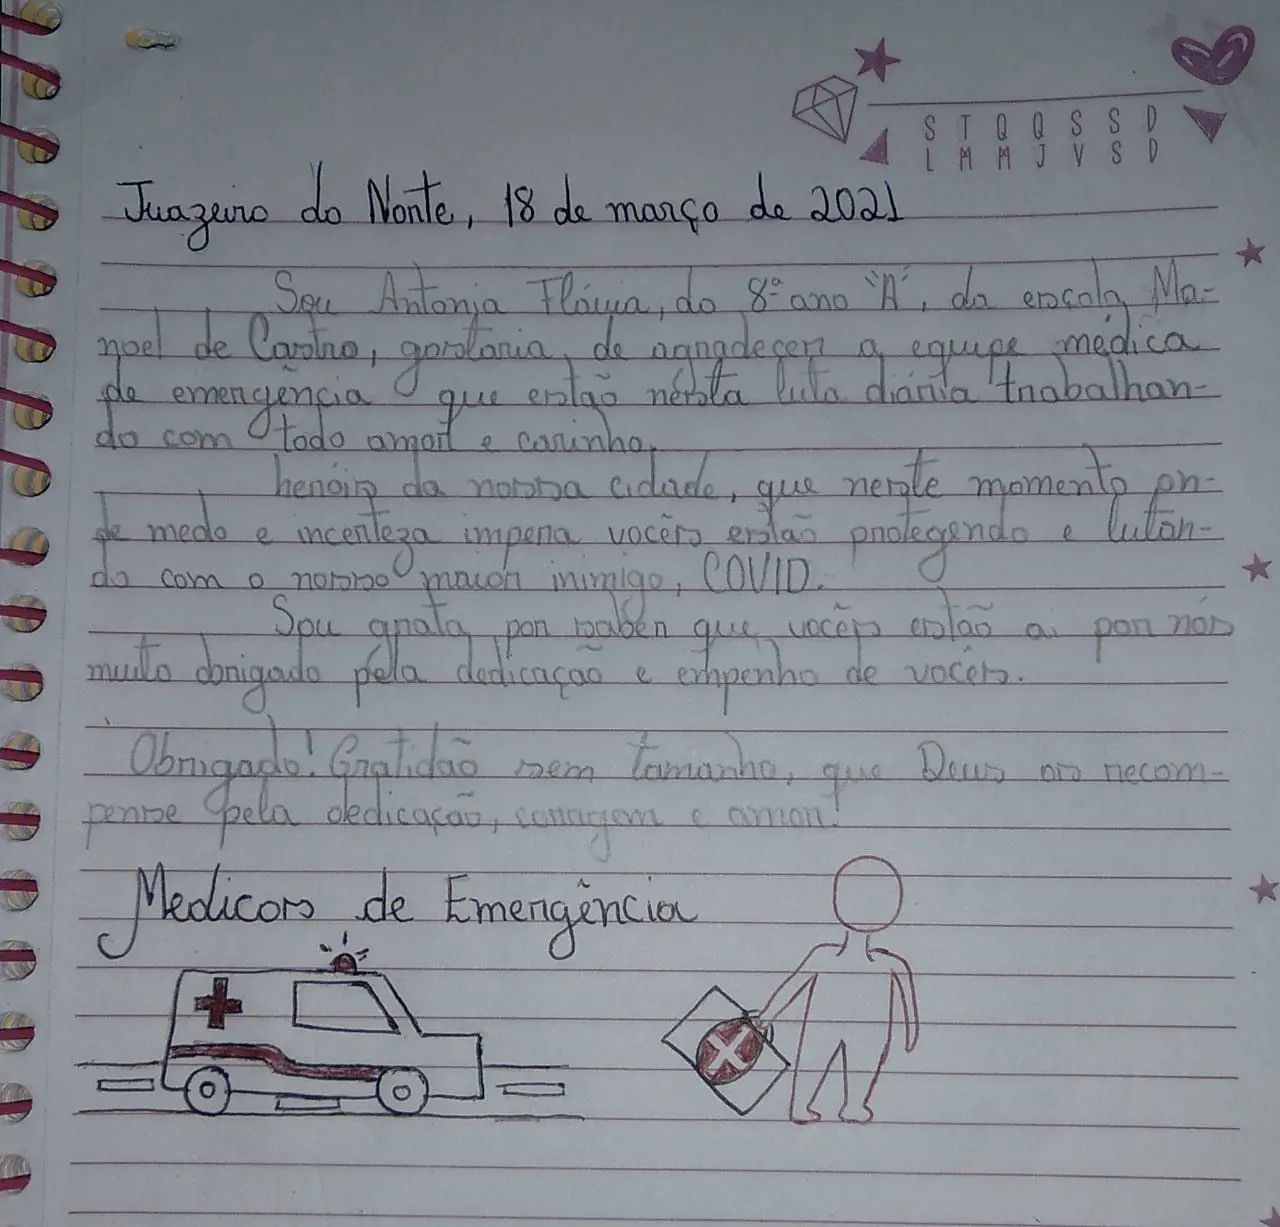 S T Q Q S S D
L M M J V S D
Juazeiro do Norte, 18 de março de 2021
Sou Antonia Flávia, do 8º ano "A", da escola Ma-
noel de Castro, gostaria de agradecer a equipe médica
de emergência que estão nésta luta diária trabalhan-
do com todo amor e carinho.
heróis da nossa cidade, que neste momento on-
de medo e incerteza impera vocês estão protegendo e lutan-
do com o nosso maior inimigo, COVID.
Sou grata por saber que vocês estão ai por nós
muito obrigado pela dedicação e empenho de vocês.
Obrigado! Gratidão sem tamanho, que Deus os recom-
pense pela dedicação, coragem e amor!
Medicos de Emergência